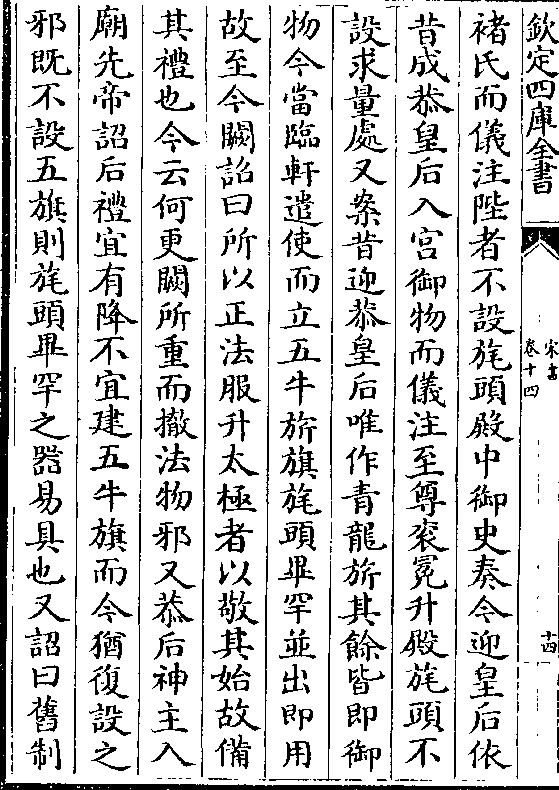 欽定四庫全書
宋書
卷十四
十四
褚氏而儀注陛者不設旄頭殿中御史奏今迎皇后依
昔成恭皇后入宮御物而儀注至尊衮冕升殿旄頭不
設求量處又案昔迎恭皇后唯作青龍旂其餘皆即御
物今當臨軒遣使而立五牛旂旗旄頭畢罕並出即用
故至今闕詔曰所以正法服升太極者以敬其始故備
其禮也今云何更闕所重而撤法物邪又恭后神主入
廟先帝詔后禮宜有降不宜建五牛旗而今猶復設之
邪既不設五旗則旄頭畢罕之器易具也又詔曰舊制